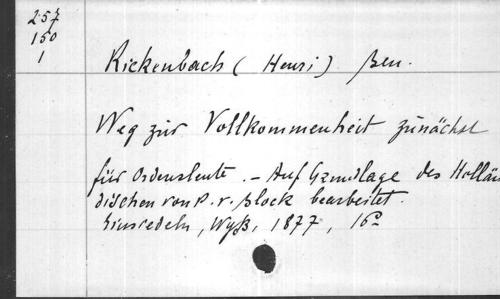 257
150
1
Rickenbach (Henri) Ben.
Weg zur Vollkommenheit zunächst
für Ordensleute. - Auf Grundlage des Hollän
dischen von P. v. Block bearbeitet.
Einsiedeln, Wyß, 1877, 16°